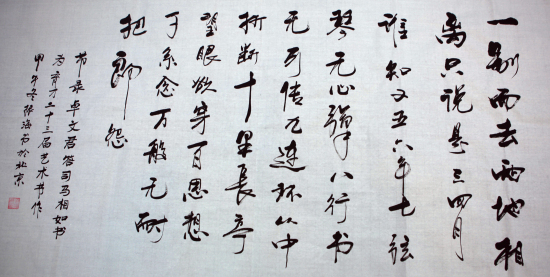 一别而去两地相
离只说是三四月
谁知又五六年七弦
琴无心弹八行书
无可传九连环从中
折断十里长亭
望眼欲穿百思想
千系念万般无耐
把郎怨
节录卓文君答司马相如书
为育才二十三届艺术节作
甲午冬张海书於北京